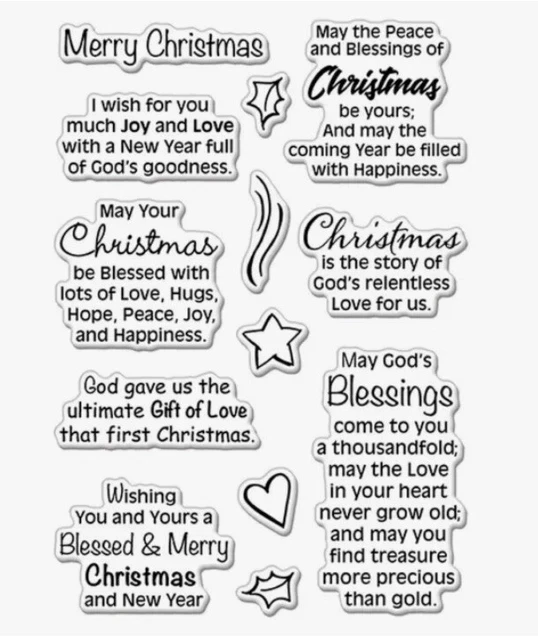 Merry Christmas
I wish for you
much Joy and Love
with a New Year full
of God's goodness.
May Your
Christmas
be Blessed with
lots of Love, Hugs,
Hope, Peace, Joy,
and Happiness.
God gave us the
ultimate Gift of Love
that first Christmas.
Wishing
You and Yours a
Blessed & Merry
Christmas
and New Year
May the Peace
and Blessings of
Christmas
be yours;
And may the
coming Year be filled
with Happiness.
Christmas
is the story of
God's relentless
Love for us.
May God's
Blessings
come to you
a thousandfold;
may the Love
in your heart
never grow old;
and may you
find treasure
more precious
than gold.